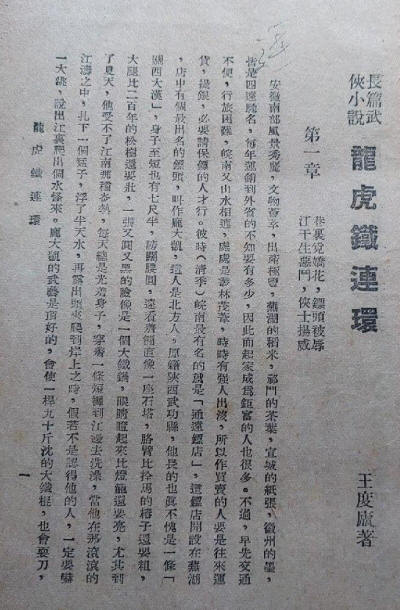 長篇武
俠小說
龍虎鐵連環
王度廬著
第一章
巷裏覓嬌花，鏢頭被辱
江干生惡鬥，俠士揚威
安徽南部風景秀麗，文物薈萃，出產極豐，蕪湖的稻米，祁門的茶葉，宣城的紙張，徽州的墨，
皆是四遠馳名，每年運銷到外省的不知要有多少，因此而起家成爲鉅富的人也很多。不過，早先交通
不便，行旅困難，皖南又山水相連，處處是叢林茂葦，時時有強人出沒，所以作買賣的人要是往來運
貨，提銀，必要請保鏢的人才行。彼時（清季）皖南最有名的就是「通遠鏢店」，這鏢店開設在蕪湖
，店中有個最出名的鏢頭，叫作龐大凱，這人是北方人，原籍陝西武功縣，他長的也眞不愧是一條「
關西大漢」，身子至短也有七尺半，膀闊腰圓，遠看齊稱直像一座石塔，胳臂比拴馬的樁子還要粗，
大腿比二百年的松樹還要壯，一張又圓又黑的臉簡是一個大鐵鍋，眼睛瞪起來比燈籠還要亮，尤其到
了夏天，他受不了江南那種暑熱，每天總是光着身子，穿着一條短褲到江邊去洗澡，當他在那滾滾的
江濤之中，扎下一個猛子，浮了半天水，再露出頭來爬到岸上之時，假若不是認得他的人，一定要嚇
一大跳，說出江裏爬出個水怪來。龐大凱的武藝是頂好的，會使一桿九十斤沈的大鐵棍，也會耍刀，
龍虎鐵連環
一